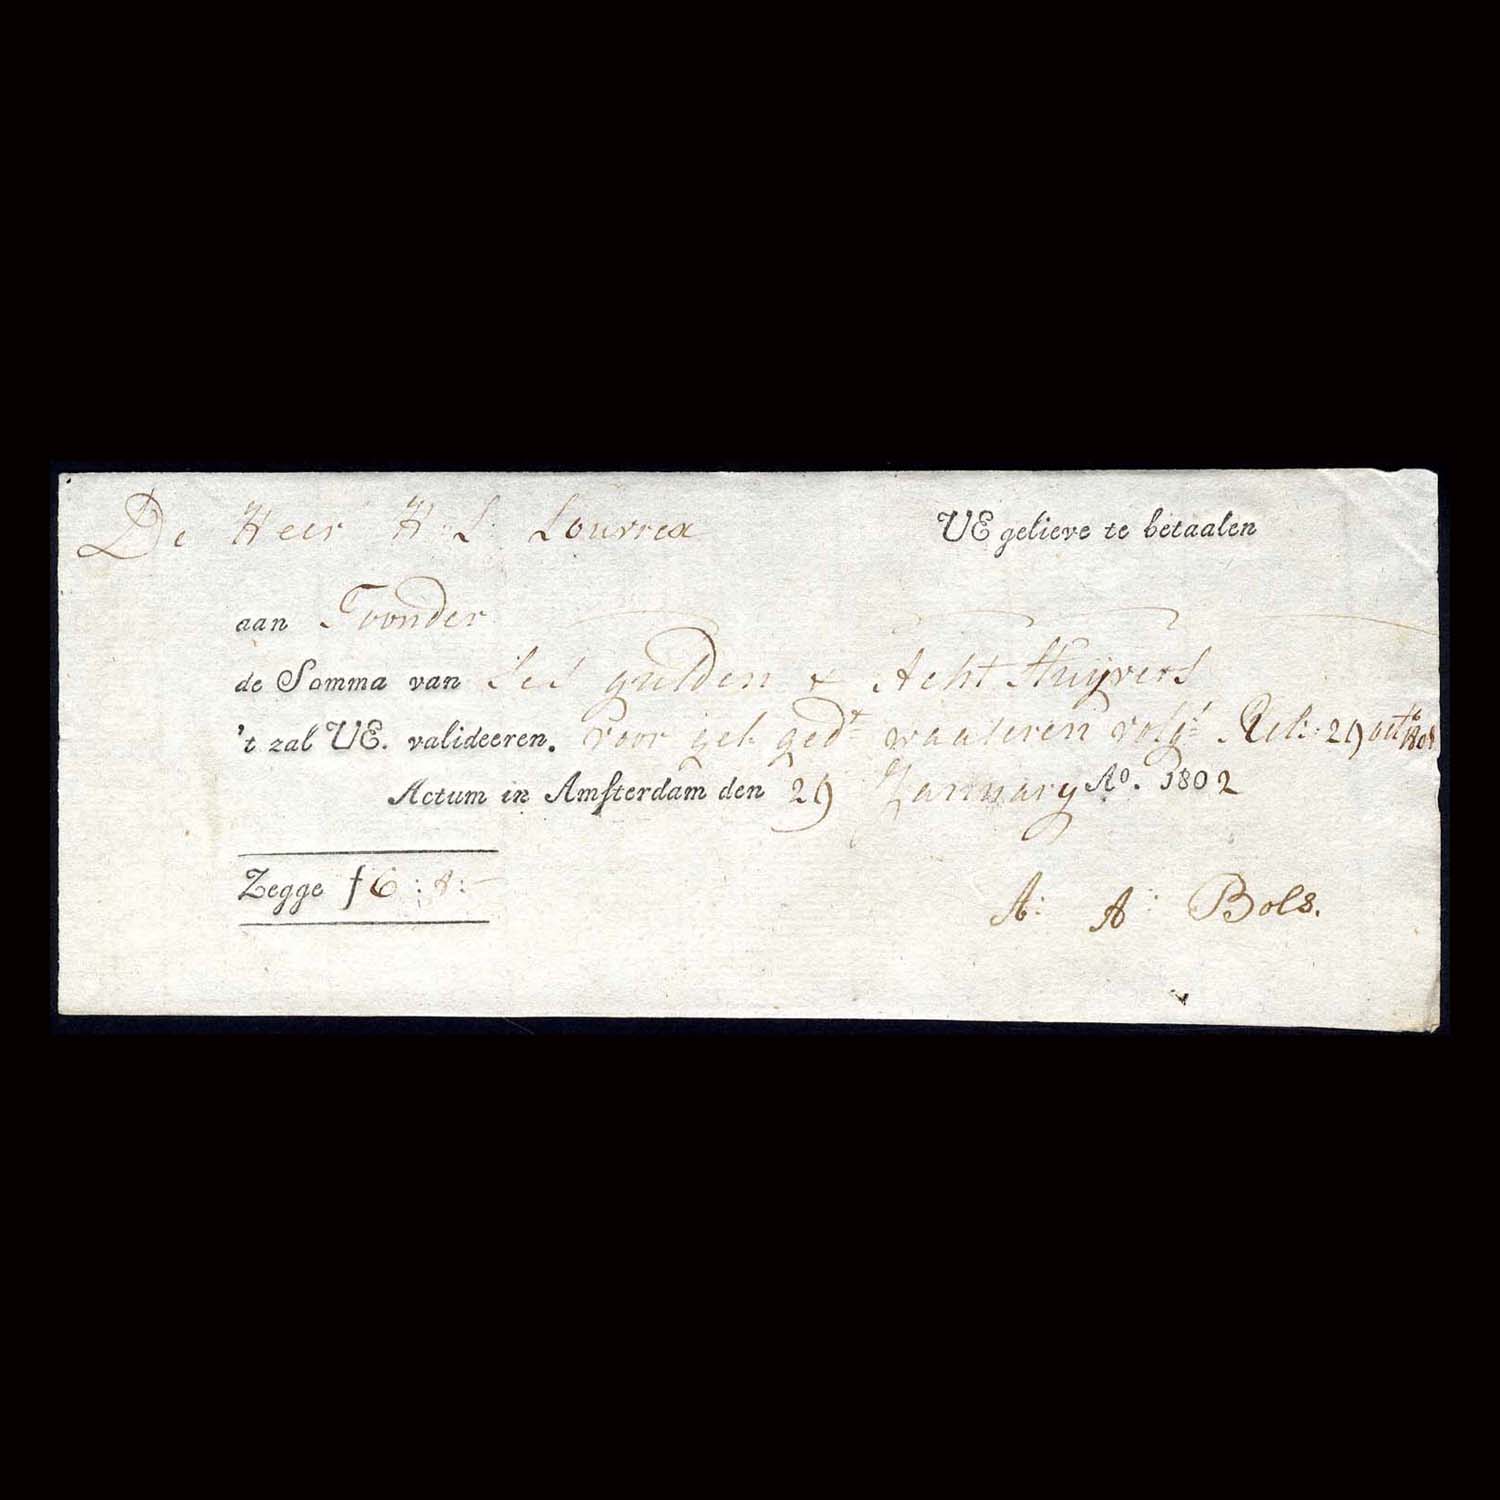 De Heer H: L: Louvrex UE gelieve te betaalen
aan Toonder
de Somma van Ses gulden & Acht Stuijvers
't zal UE. valideeren. voor gel: ged:t waateren volg:s Rek: 29 oct:b 1801
Actum in Amsterdam den 29 January Ao. 1802
Zegge f 6 : 8 : -
A: A: Bols.